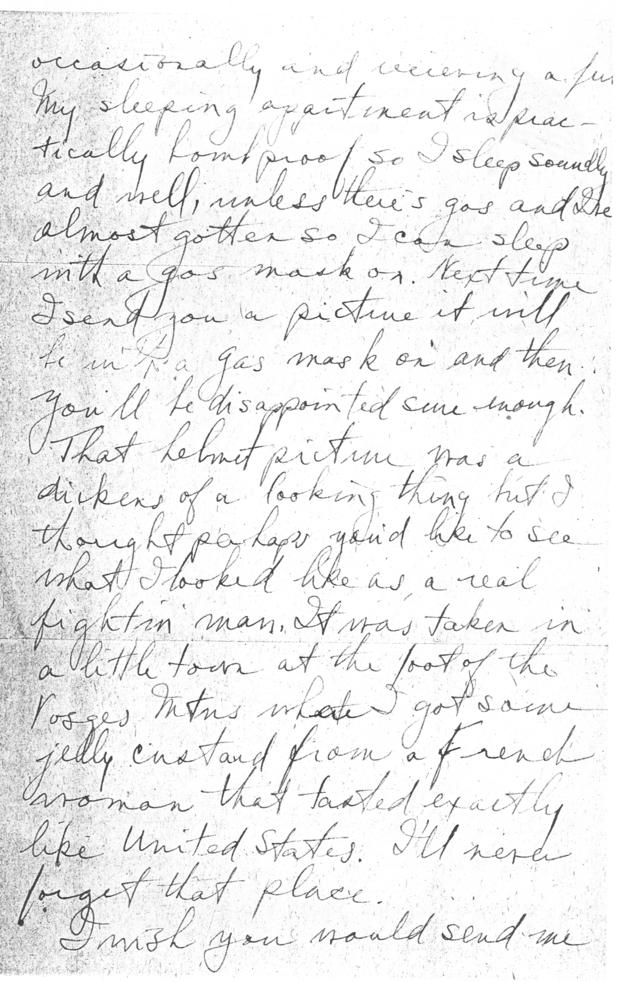 occasionally and recieving a
My sleeping apartment is prac-
tically bombproof so I sleep soundly
and well, unless there's gas and I've
almost gotten so I can sleep
with a gas mask on. Next time
I send you a picture it will
be with a gas mask on and then
you'll be disappointed sure enough.
That helmet picture was a
dickens of a looking thing but I
thought perhaps you'd like to see
what I looked like as a real
fightin' man. It was taken in
a little town at the foot of the
Vosges Mtns where I got some
jelly custard from a French
woman that tasted exactly
like United States. I'll never
forget that place.
I wish you would send me